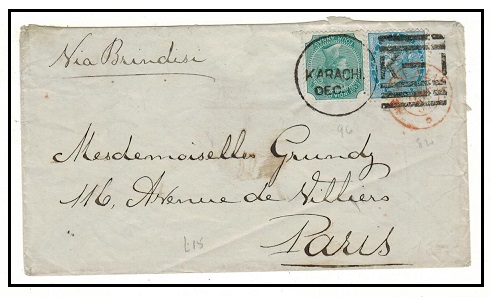 Via Brindisi
KARACHI
DEC.
K-1
Mesdemoiselles Grundy
116, Avenue de Villiers
Paris
£15
96